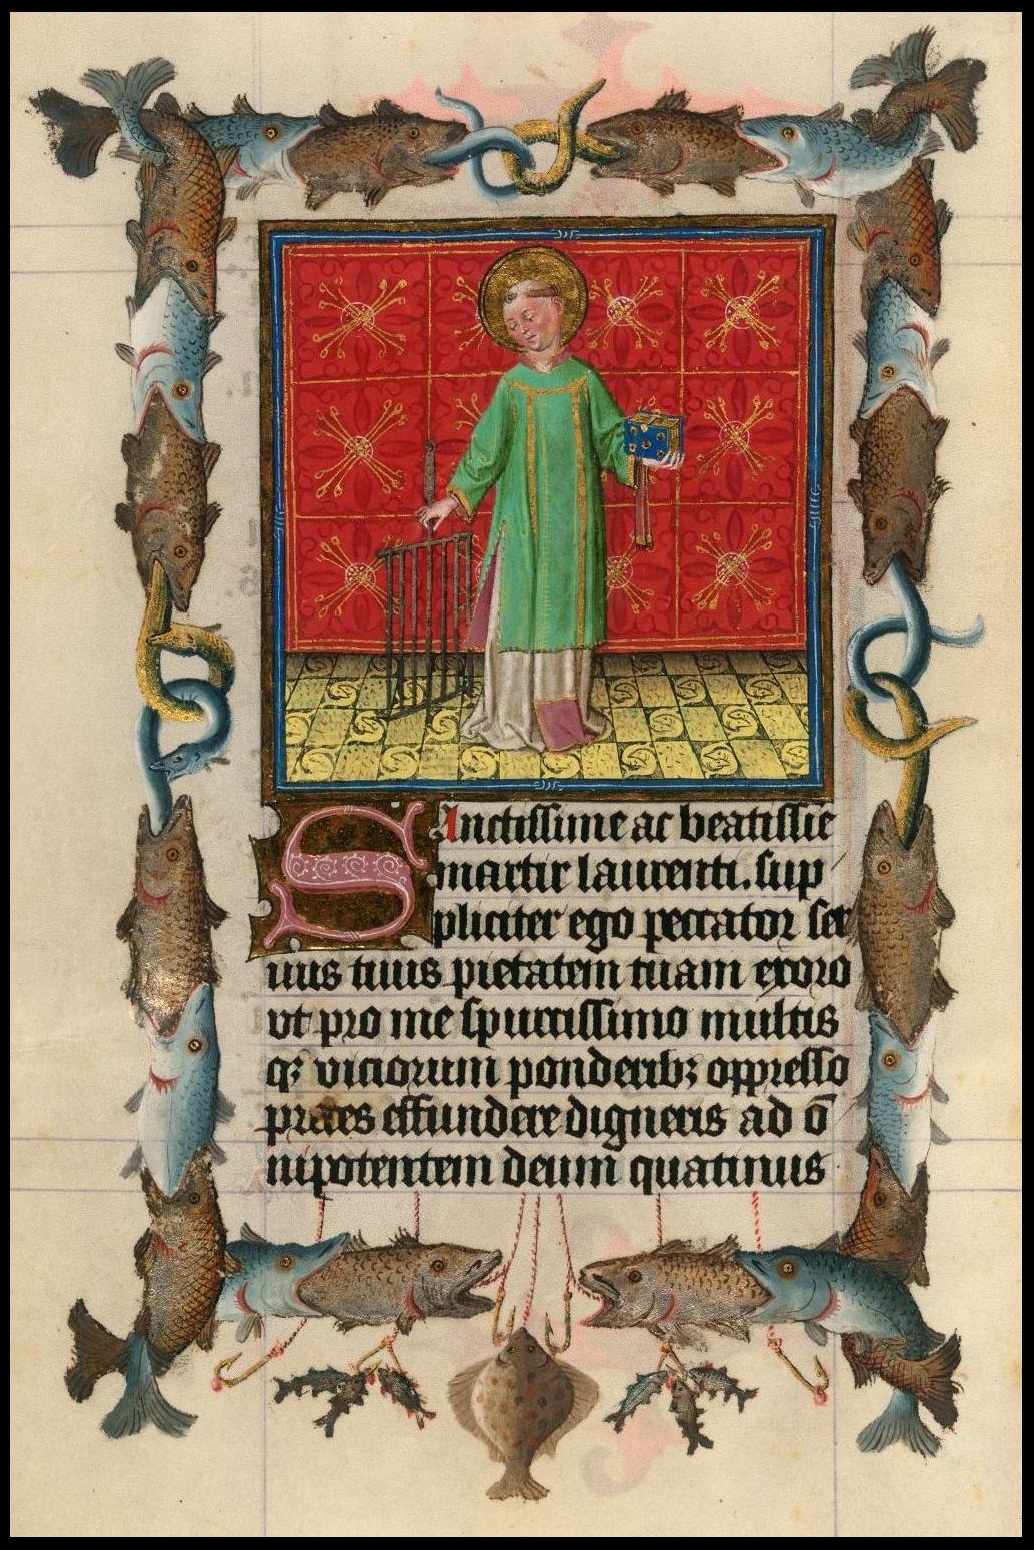 SAnctissime ac beatissie
martir laurenti. sup
pliciter ego peccator ser
uus tuus pietatem tuam exoro
vt pro me spurcissimo multis
q; viciorum ponderib; oppresso
preces effundere digneris ad ō
nipotentem deum quatinus